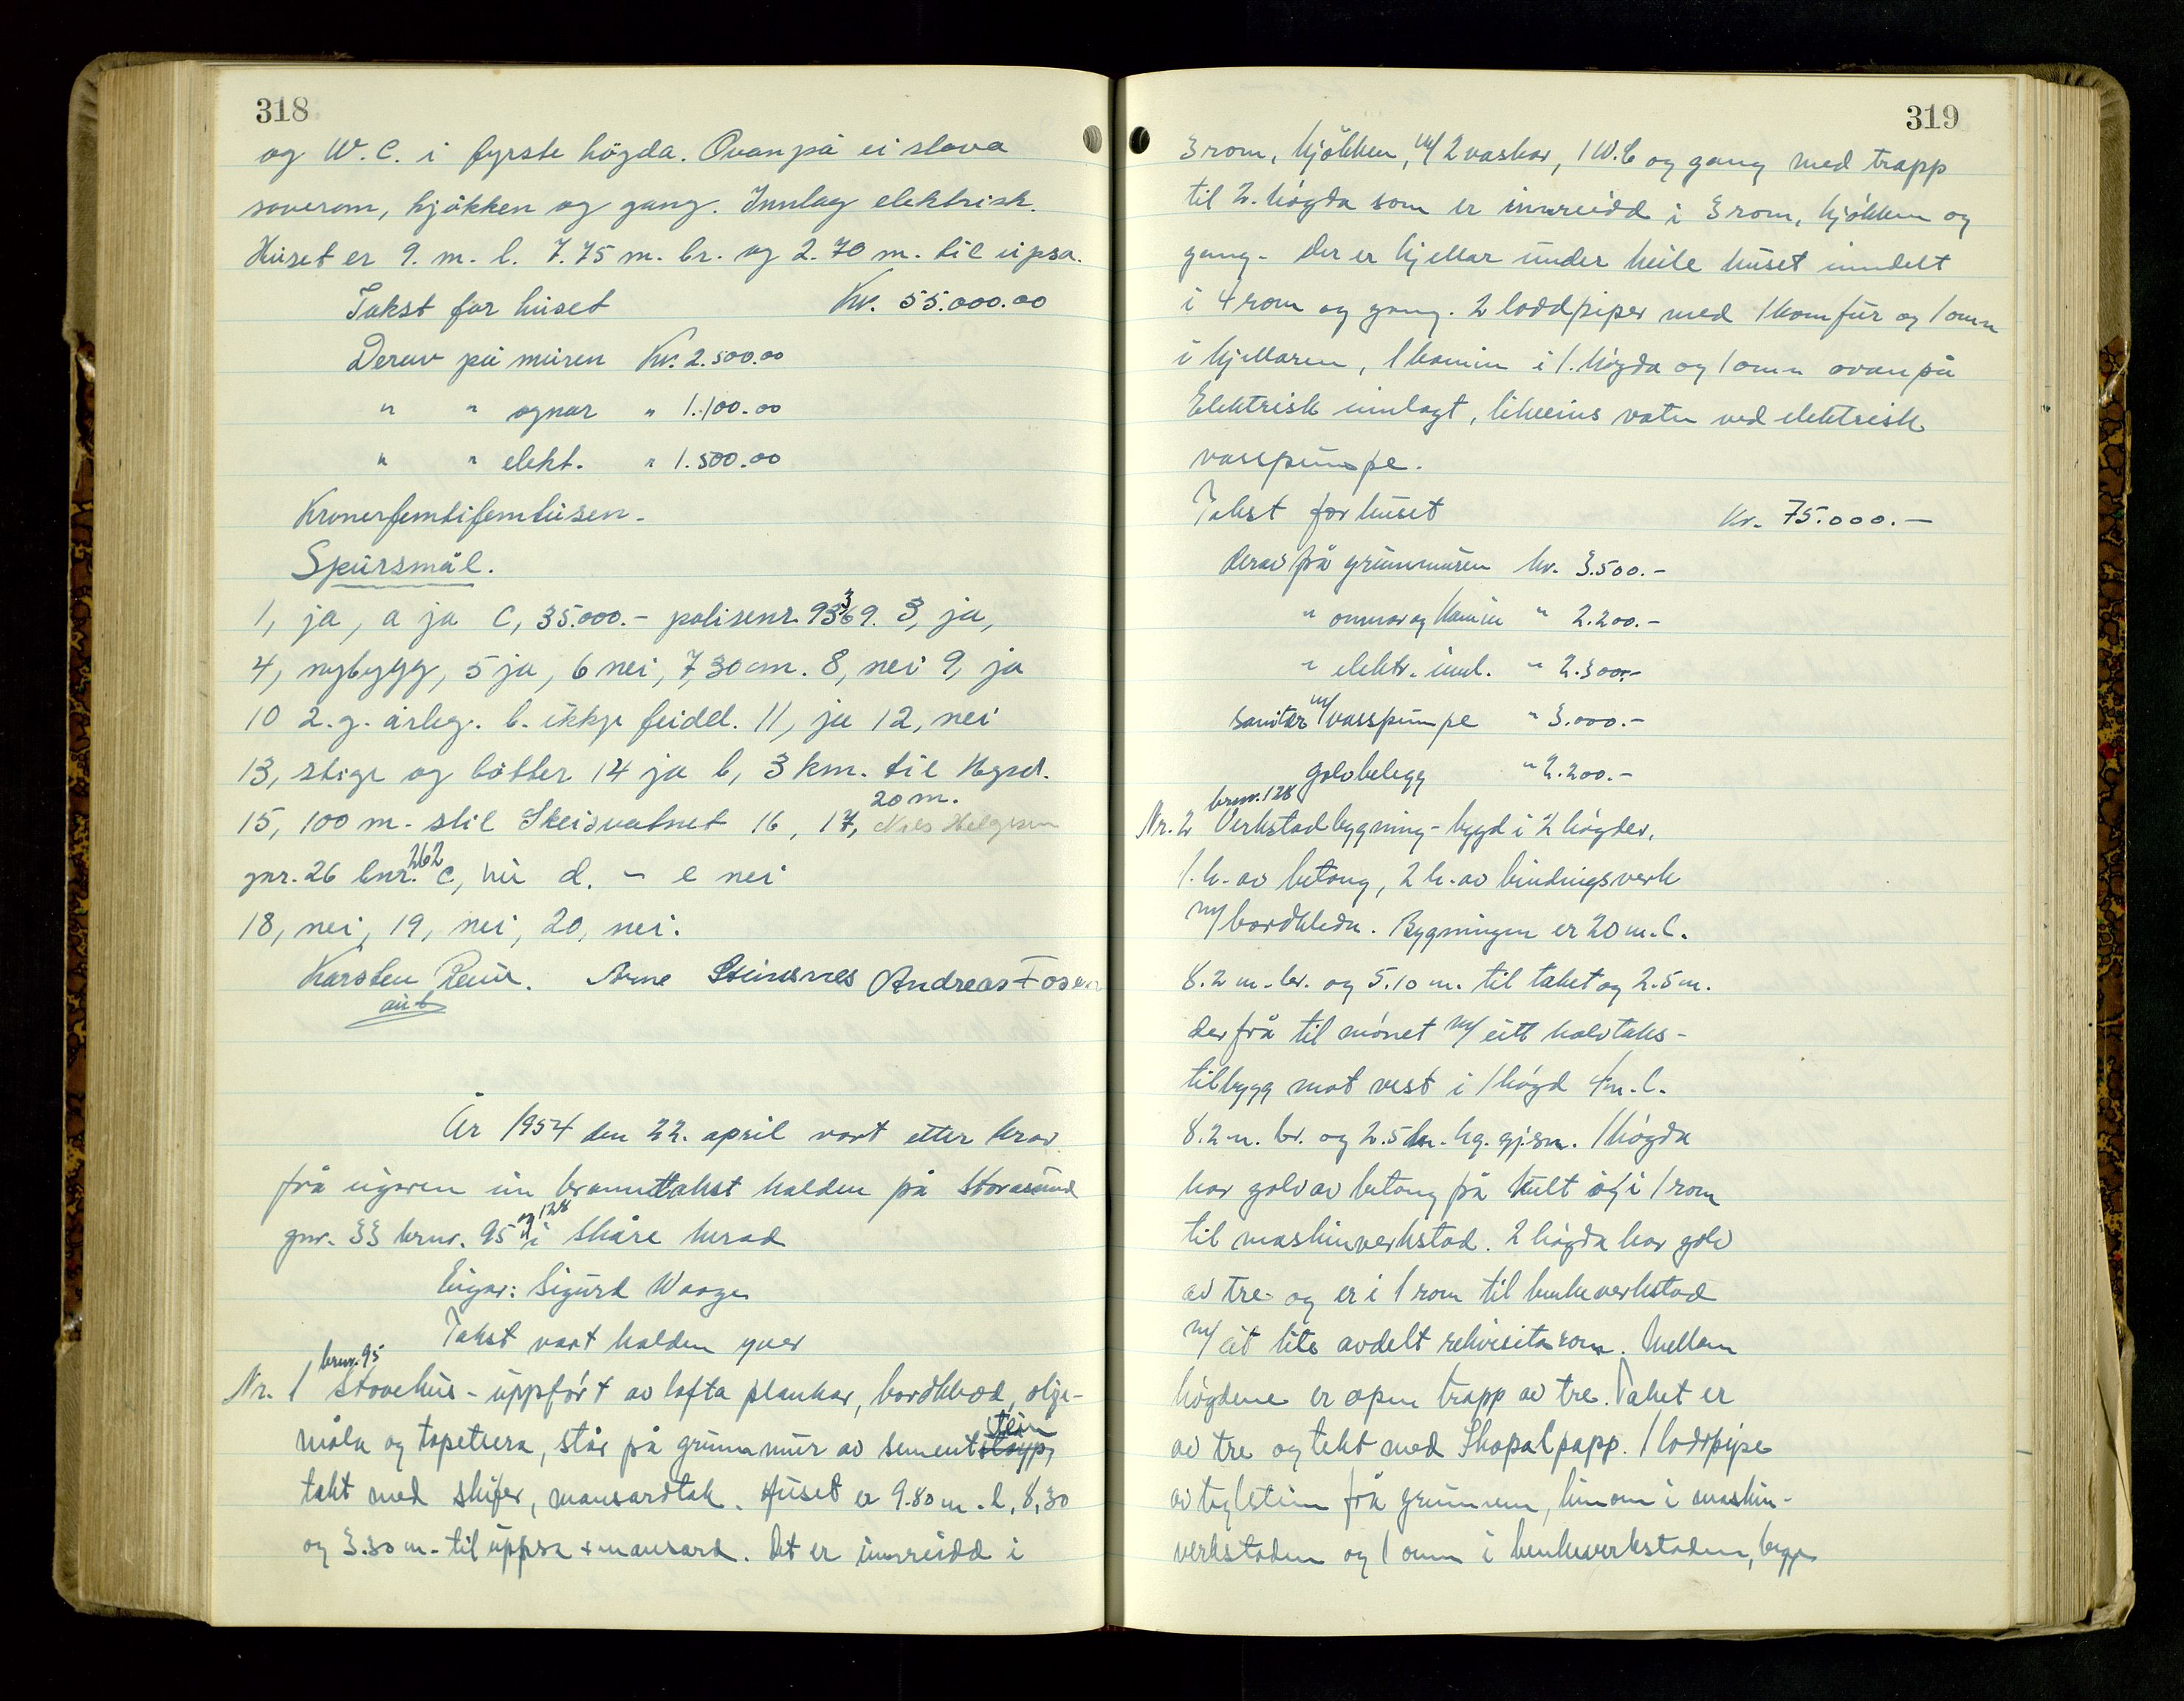 318
og W.C. i fyrste högda. Ovanpå ei stova
soverom, kjökken og gang. Innlag elektrisk.
Huset er 9. m. l. 7.75 m. br. og 2.70 m. til upsa.
Takst for huset Kr. 55.000.00
Derav på muren Kr. 2.500.00
" " ognar " 1.100.00
" " elekt. " 1.500.00
Kronerfemtifemtusen.
Spursmål.
1, ja, a ja C, 35.000.- polisenr. 3, ja,
4, nybygg, 5 ja, 6 nei, 7, 30 cm. 8, nei 9, ja
10 2.g. årleg. b. ikkje feidd. 11, ja 12, nei
13, stige og bötter 14 ja b, 3 km. til Hgsd.
20 m.
15, 100 m. stil Skeisvatnet 16, 17, Nils Helgesen
262
gnr. 26 bnr. C, nei d. - e nei
18, nei, 19, nei, 20, nei.
Karsten Arne Steinsnes Andreas Fosen
År 1954 den 22. april vart etter krav
frå eigaren ein branntakst halden på Storasund
og 128
gnr. 33 brnr. 95 i Skåre herad
Eigar: Sigurd Waage
Takst vart halden yver
brnr. 95
Nr. 1 Stovehus - uppført av lafta plankar, bordkledd, olje-
stein
måla og tapetsera, står på grunnmur av sementstøyp,
tekt med skifer, mansardtak. Huset er 9.80 m. l, 8,30
og 3.30 m. til uppsa + mansard. Det er innreidd i
319
3 rom, kjøkken, m/ 2 vaskar, 1 W.C og gang med trapp
til 2. høgda som er innreidd i 3 rom, kjøkken og
gang - der er kjellar under heile huset inndelt
i 4 rom og gang. 2 loddpiper med 1 komfur og 1 omn
i kjellaren, 1 kamin i 1. høgda og 1 omn ovanpå
Elektrisk innlagt, likeeins vatn ved elektrisk
vasspumpe.
Takst for huset Kr. 75.000.-
derav på grunnmuren kr. 3.500.-
" omnar og kamin " 2.200.-
" elektr. innl. " 2.300.-
sanitær m/ vasspumpe " 3.000.-
golvbelegg " 2.200.-
brnr. 128
Nr. 2 Verkstadbygning - bygd i 2 høgder,
1. h. av betong, 2 h. av bindingsverk
m/ bordkledn. Bygningen er 20 m. l.
8.2 m. br. og 5.10 m. til taket og 2.5 m.
derfrå til mønet m/ eitt halvtaks-
tilbygg mot vest i 1 høgd 4 m. l.
8.2 m. br. og 2.5 m. hg. gj.sn. 1 høgda
har golv av betong på kult og i 1 rom
til maskinverkstad. 2 høgda har golv
av tre og er i 1 rom til benkeverkstad
m/ eit lite avdelt rekvisitarom. Mellem
høgdene er open trapp av tre. Taket er
av tre og tekt med Skopalpapp. 1 loddpipe
av teglstein frå grunnen, 1 i maskin-
verkstaden og 1 omn i benkeverkstaden, begge